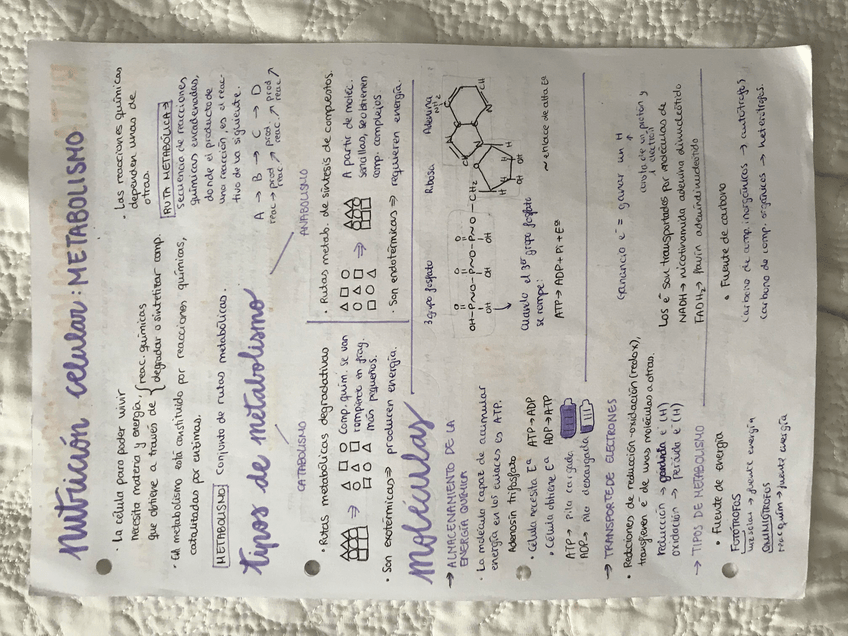 Nutrición celular: METABOLISMO
· La célula para poder vivir
necesita materia y energía,
que obtiene a través de { reac. químicas
degradar o sintetizar comp.
· El metabolismo está constituido por reacciones químicas,
catalizadas por enzimas.
METABOLISMO conjunto de rutas metabólicas.
· Las reacciones químicas
dependen unas de
otras.
RUTA METABÓLICA ⇒
secuencia de reacciones
químicas encadenadas,
donde el producto de
una reacción, es el reac-
tivo de la siguiente.
A → B → C → D
reac → prod ↗ prod ↗ prod
reac reac reac
tipos de metabolismo
CATABOLISMO
· Rutas metabólicas degradativas
⇒ comp. quím. se van
romper en frag.
más pequeños.
· Son exotérmicas ⇒ producen energía.
ANABOLISMO
· Rutas metab. de síntesis de compuestos.
⇒ A partir de moléc.
sencillas, se obtienen
comp. complejos
· Son endotérmicas ⇒ requieren energía.
Moléculas
→ ALMACENAMIENTO DE LA
ENERGÍA QUÍMICA
· La molécula capaz de acumular
energía en los enlaces es ATP.
Adenosín trifosfato
· Célula necesita Eª ATP → ADP
· Célula obtiene Eª ADP → ATP
ATP → pila cargada
ADP → pila descargada
3 grupo fosfato Ribosa Adenina
NH2
O O O
OH-P~O-P~O-P~O-CH2
OH OH OH
OH OH
CH
Cuando el 3er grupo fosfato
se rompe:
ATP → ADP + Pi + Eª
~ enlace de alta Eª
→ TRANSPORTE DE ELECTRONES
· Reacciones de reducción-oxidación (redox),
transfieren e- de unas moléculas a otras.
reducción → ganada e- (H)
oxidación → perdida e- (H)
ganancia e- = ganar un H
consta de un protón y
1 electrón
Los e- son transportados por moléculas de
NADH → nicotinamida adenina dinucleótido
FADH2 → flavín adenín dinucleótido
→ TIPOS DE METABOLISMO
· Fuente de energía
FOTÓTROFOS
luz solar → fuente energía
QUIMIÓTROFOS
reac quím → fuente energía
· Fuente de carbono
carbono de comp. inorgánicos → autótrofos
carbono de comp. orgánicos → heterótrofos.